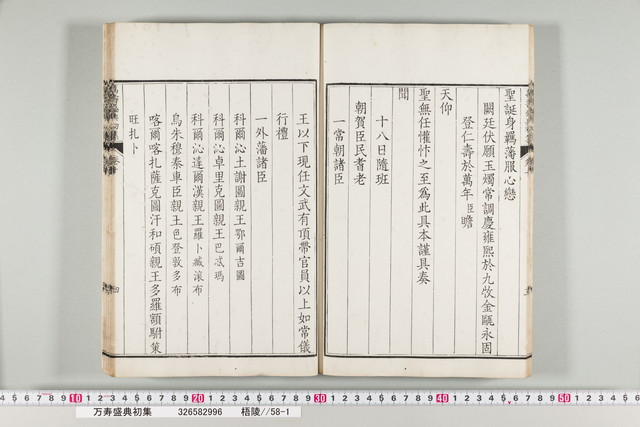 聖誕身羈藩服心戀
闕廷伏願玉燭常調慶雍熙於九牧金甌永固
登仁壽於萬年臣瞻
天仰
聖無任懽忭之至爲此具本謹具奏
聞
十八日隨班
朝賀臣民耆老
一常朝諸臣
王以下現任文武有頂帶官員以上如常儀
行禮
一外藩諸臣
科爾沁土謝圖親王鄂爾吉圖
科爾沁卓里克圖親王巴忒瑪
科爾沁達爾漢親王羅卜臧滾布
烏朱穆秦車臣親王色登敦多布
喀爾喀扎薩克圖汗和碩親王多羅額駙策
旺扎卜
万寿盛典初集 326582996 梧陵//58-1
10 20 30 40 50